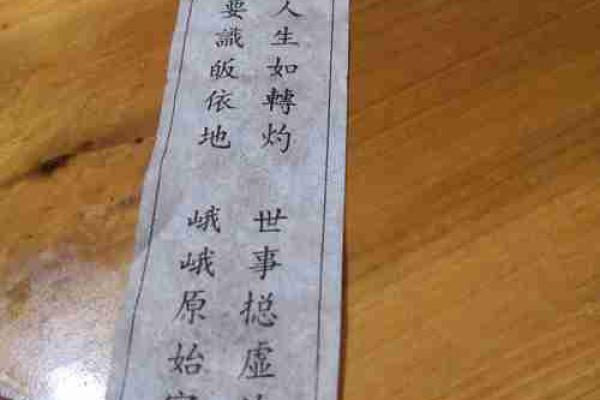 人生如轉灼 世事搃虛
要識皈依地 峨峨原始